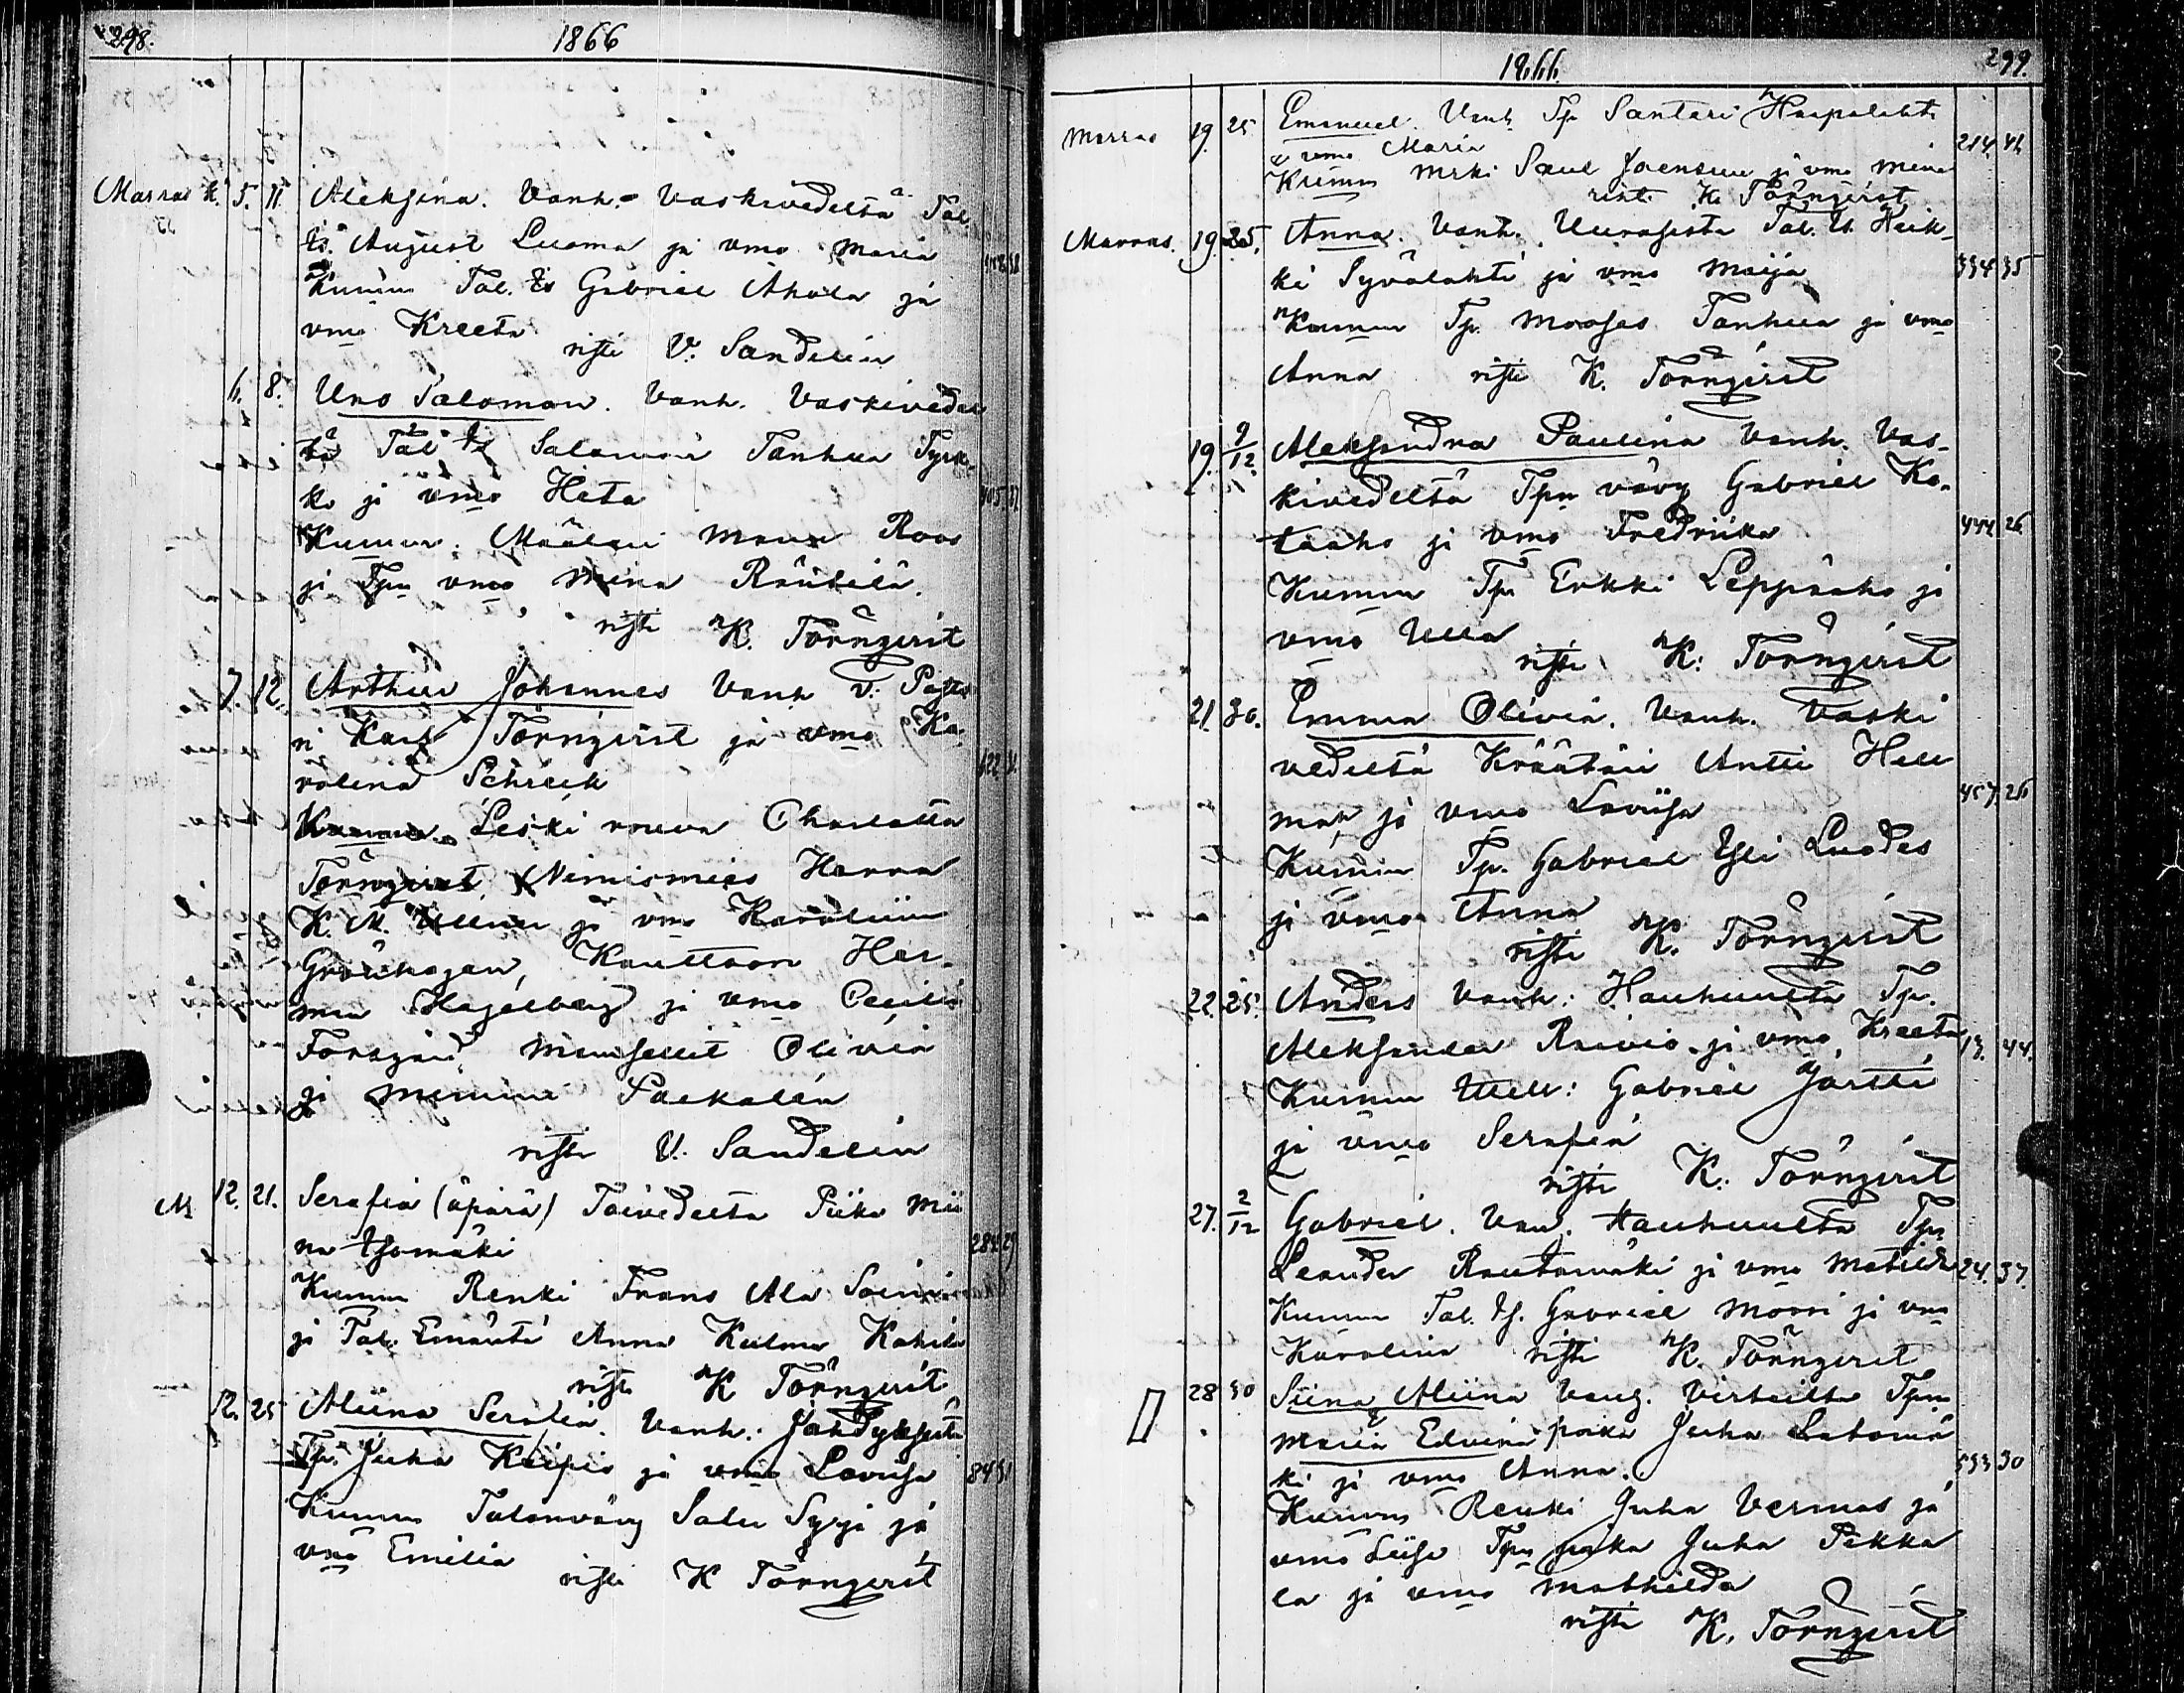 298.
1866
Marras k. 5. 11. Aleksina. Vanh. Vaskivedeltä Tal.
Is. August Luoma ja vmo Maria
Kumm Tal. Is Gabriel Ahola ja
vmo Kreeta
risti V. Sandelin
6. 8. Uno Salomon. Vanh. Vaskivedel
tä Tal Is Salomon Tanhua Tyrk
kö ja vmo Heta 405
Kumm. Määläri Roos
ja Tpn vmo Mina Räntilä.
risti K. Törnqvist
7. 12. Arthur Johannes Vanh v. Pasto
ri Karl Törnqvist ja vmo Ka
rolina Schreck 622
Kumm. Leski rouva Charlotta
Törnqvist, Nimismies Herra
K. M. Ullner ja vmo Karoliina
Grönhagen, Kanttoori Her
man Hagelberg ja vmo Cecilia
Forsgren, Mamsellit Olivia
ja Minna Packalén
risti V. Sandelin
12. 21. Serafia (äpärä) Toivedelta Piika Mii
na Isomäki 284 29
Kumm Renki Frans Ala Soini
ja Tal. Emäntä Anna Kulma Kahila
risti K Törnqvist
12. 25 Aliina Serafia. Vanh. Jähdyksestä
Tp. Juha Keipis ja vmo Loviisa 84 31
Kumm Talonvävy Salu Syvjä ja
vmo Emilia
risti K Törnqvist
1866.
299.
Marras 19. 25 Emanuel. Vanh. Tp Santeri Haapalahti
ja vmo Maria 214. 41
Kumm Mrki Saul Joensuu ja vmo Mina
risti K. Törnqvist
Marras. 19. 25. Anna. Vanh. Uurasista Tal. Is. Heik
ki Syvälahti ja vmo Maija 334 35
Kumm Tp. Mooses Tanhua ja vmo
Anna risti K. Törnqvist
19. 9/12. Aleksandra Paulina Vanh. Vas
kivedeltä Tpn vävy Gabriel Ka
taaho ja vmo Fredriika 444 26
Kumm Tp Erkki Leppäaho ja
vmo Ulla
risti K. Törnqvist
21. 30. Emma Olivia. Vanh. Vaski
vedeltä Kräätäri Antti Hell
man ja vmo Loviisa 457. 26
Kumm Tp. Gabriel Yli Luodes
ja vmo Anna
risti K. Törnqvist
22. 25. Anders Vanh: Hauhuulta Tp.
Aleksander Raivio ja vmo Kreeta 13. 44.
Kumm Itell: Gabriel Jartti
ja vmo Serafia
risti K. Törnqvist
27. 2/12 Gabriel. Van. Hauhuulta Tp
Leander Rautamäki ja vmo Matilda 24. 37.
Kumm Tal. Is. Gabriel Morri ja vmo
Karolina risti K. Törnqvist
28 30 Siina Aliina Vang. Virteiltä Tpn
Maria Edvina poika Juha Latomä
ki ja vmo Anna. 533 30
Kumm Renki Juha Vermas ja
vmo Liisa Tpn poika Juha Pekka
la ja vmo Mathilda
risti K. Törnqvist